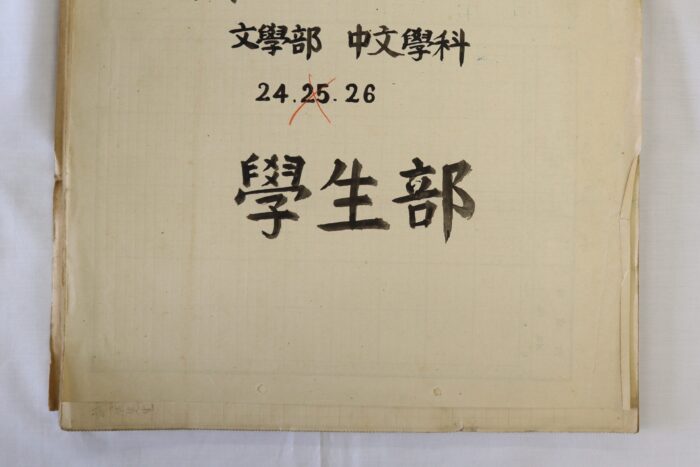 文學部 中文學科
24.25.26
學生部